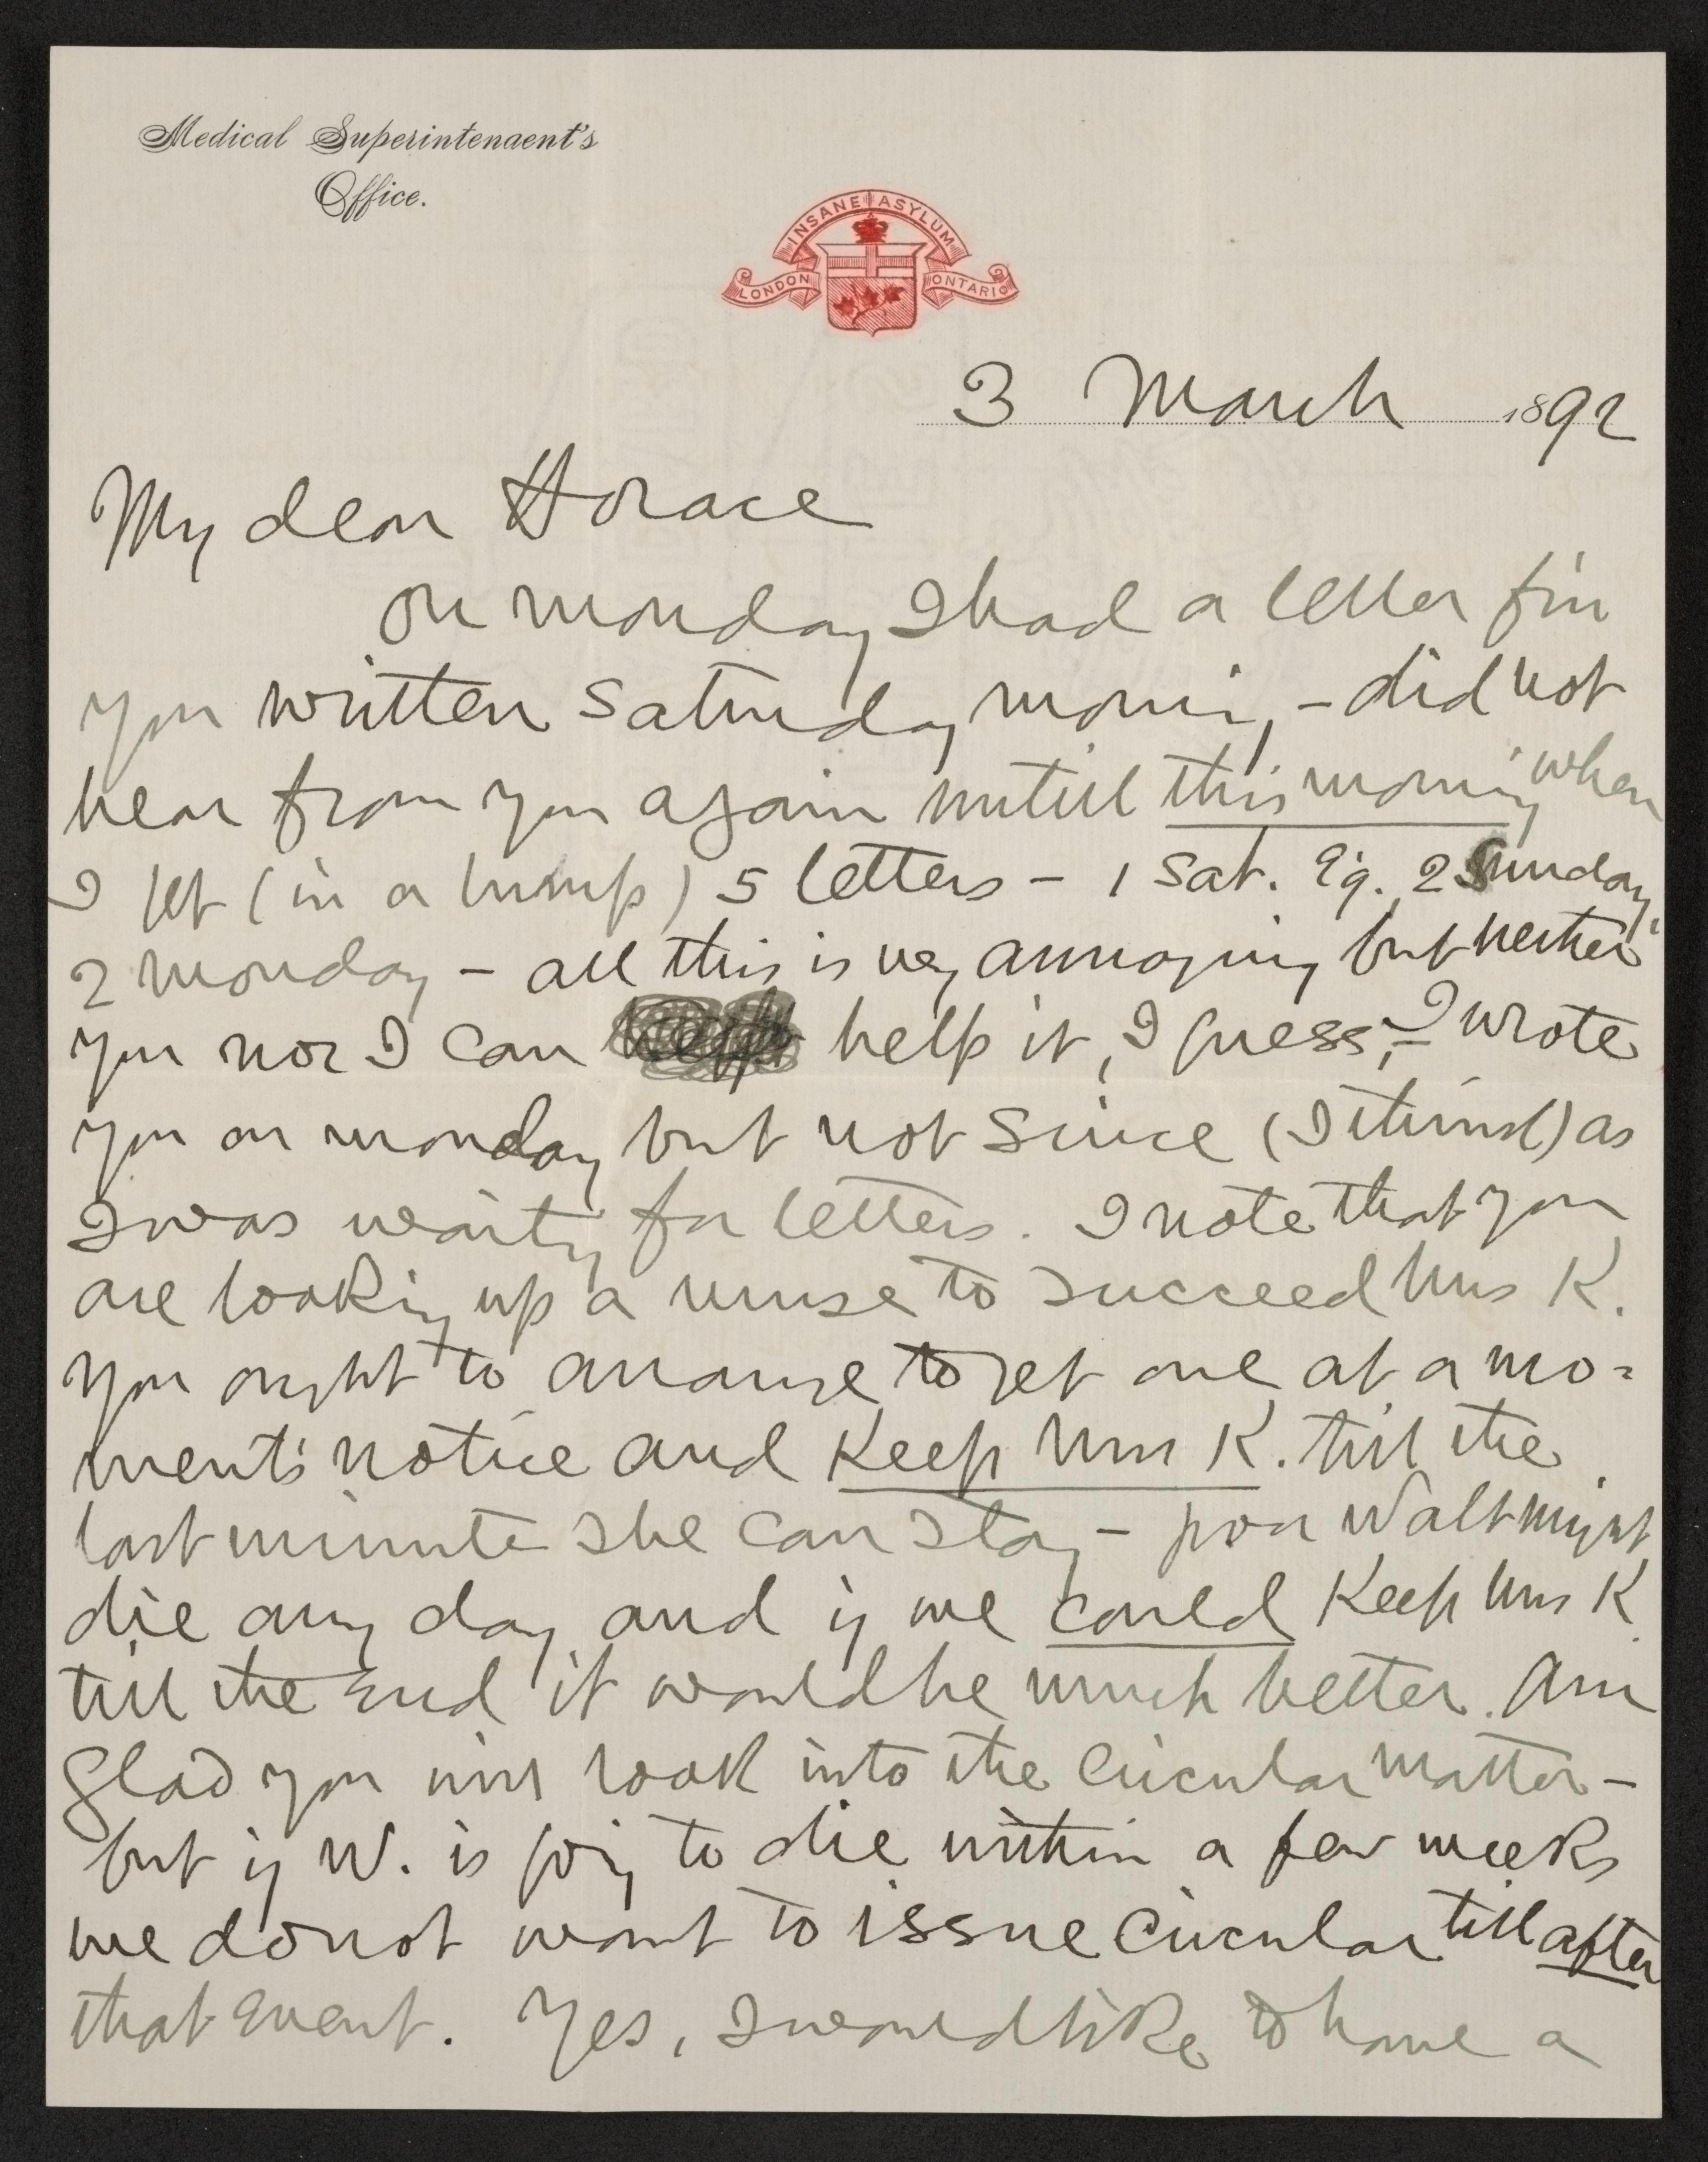 Medical Superintendent's
Office.
INSANE ASYLUM
LONDON ONTARIO
3 March 1892
My dear Horace
On Monday I had a letter fm
you written Saturday morning, – did not
hear from you again until this morning when
I get (in a lump) 5 letters – 1 Sat. Eg. 2 Sunday,
2 Monday – all this is very annoying but neither
you nor I can help it, I guess, – I wrote
you on Monday but not since (I think) as
I was waiting for letters. I note that you
are looking up a nurse to succeed Mrs K.
You ought to arrange to get one at a mo=
ment's notice and Keep Mrs K. till the
last minute she can stay – poor Walt might
die any day and if we could Keep Mrs K
till the end it would be much better. Am
glad you will look into the circular matter –
but if W. is going to die within a few weeks
we do not want to issue circular till after
that event. Yes, I would like to have a